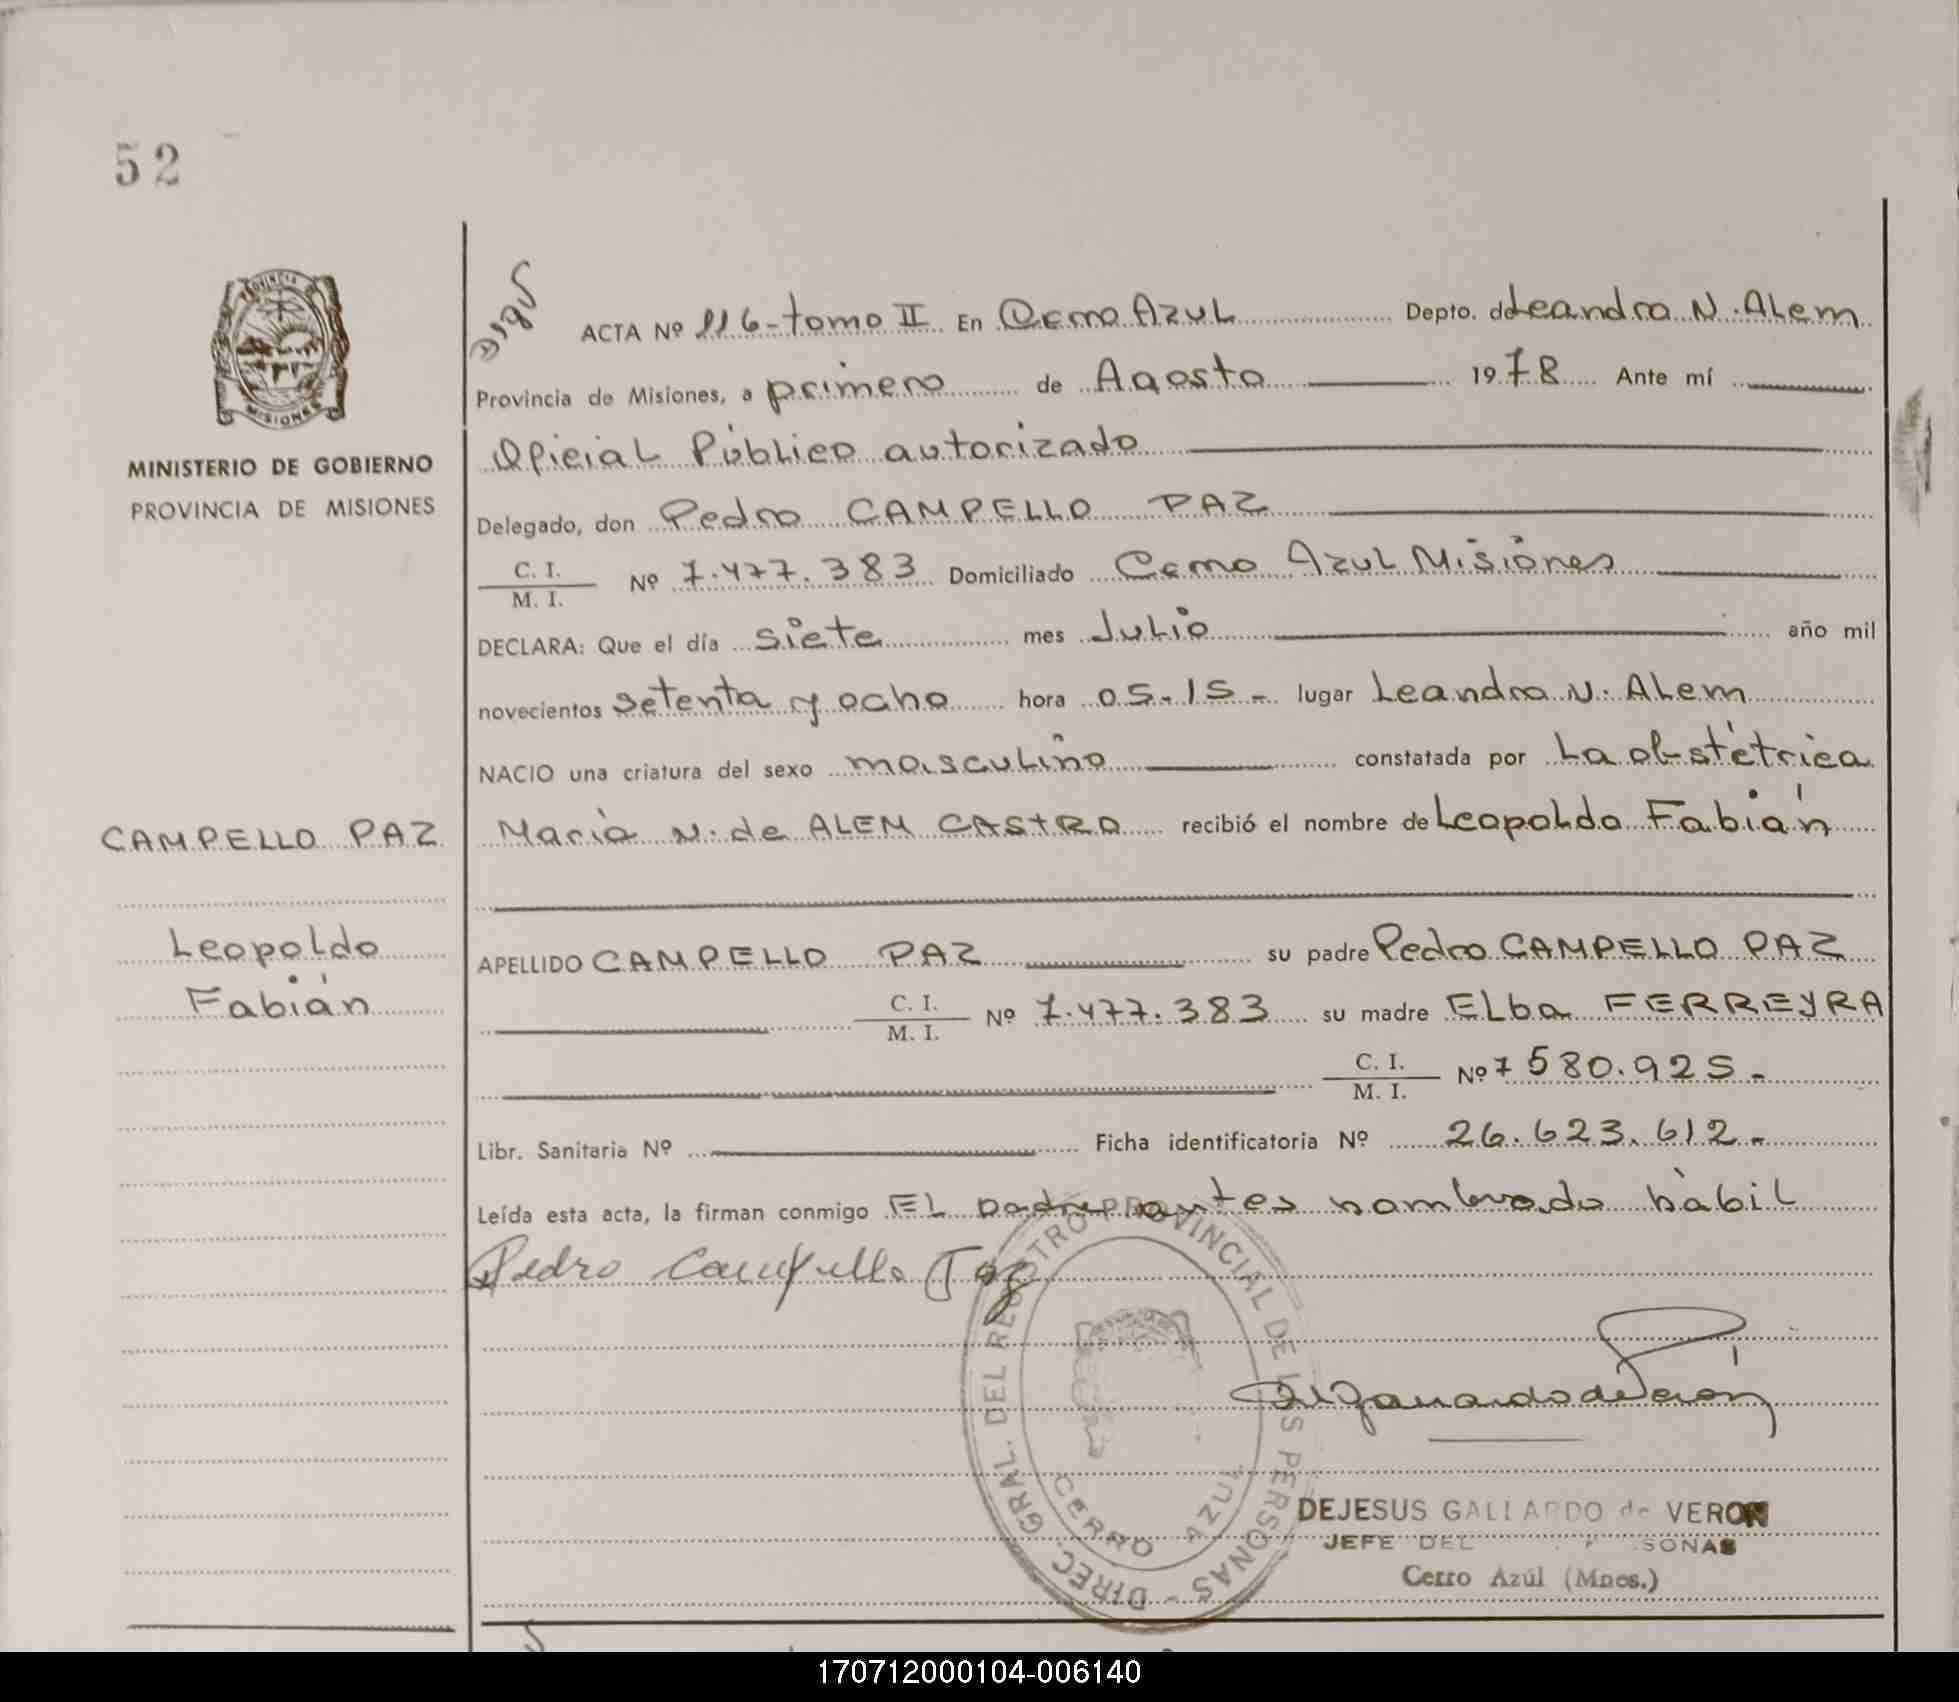 52
ACTA Nº 116-tomo II En Cerro AZUL Depto. de Leandro N. ALem
Provincia de Misiones, a primero de Agosto 1978 Ante mí
MINISTERIO DE GOBIERNO
PROVINCIA DE MISIONES
Oficial Público autorizado
Delegado, don Pedro CAMPELLO PAZ
C. I.
M. I. Nº 7.477.383 Domiciliado Cerro Azul Misiones
DECLARA: Que el día siete mes Julio año mil
novecientos setenta y ocho hora 05-15- lugar Leandro N. ALem
NACIO una criatura del sexo masculino constatada por La obstétrica
María N. de ALEM CASTRO recibió el nombre de Leopoldo Fabián
CAMPELLO PAZ
Leopoldo
Fabián
APELLIDO CAMPELLO PAZ su padre Pedro CAMPELLO PAZ
C. I.
M. I. Nº 7.477.383 su madre ELba FERREYRA
C. I.
M. I. Nº 7 580.925-
Libr. Sanitaria Nº Ficha identificatoria Nº 26.623.612-
Leída esta acta, la firman conmigo EL padre antes nombrado hàbil
Pedro Campello Paz
DIREC. GRAL. DEL REGISTRO PROVINCIAL DE LAS PERSONAS -
CERRO AZUL
DEJESUS GALLARDO de VERON
JEFE DEL SONAS
Cerro Azúl (Mnes.)
170712000104-006140